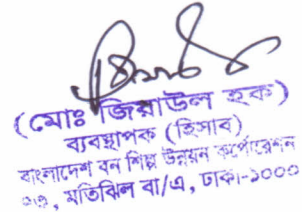 (মোঃ জিয়াউল হক)
ব্যবস্থাপক (হিসাব)
বাংলাদেশ বন শিল্প উন্নয়ন কর্পোরেশন
৭৩, মতিঝিল বা/এ, ঢাকা-১০০০